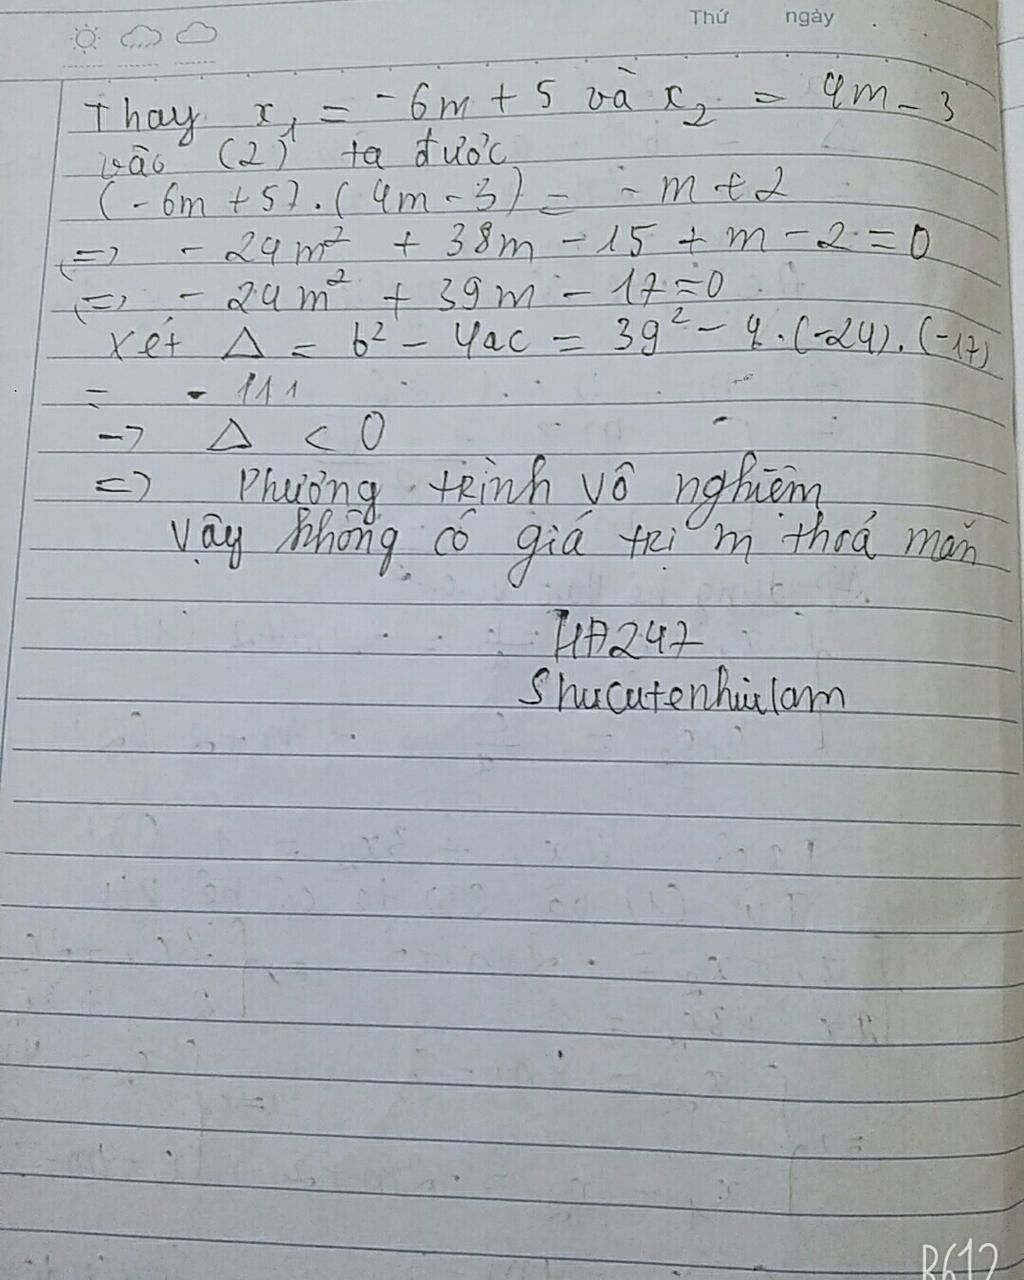 Thứ ngày
Thay x₁ = -6m + 5 và x₂ = 4m - 3
vào (2) ta được
(-6m + 5).(4m - 3) = -m + 2
(=) - 24m² + 38m - 15 + m - 2 = 0
(=) - 24m² + 39m - 17 = 0
Xét Δ = b² - 4ac = 39² - 4.(-24).(-17)
= - 111
-> Δ < 0
=> Phường trình vô nghiệm
Vậy không có giá trị m thoả mãn
HĐ247
Shucutenhùlam
R612